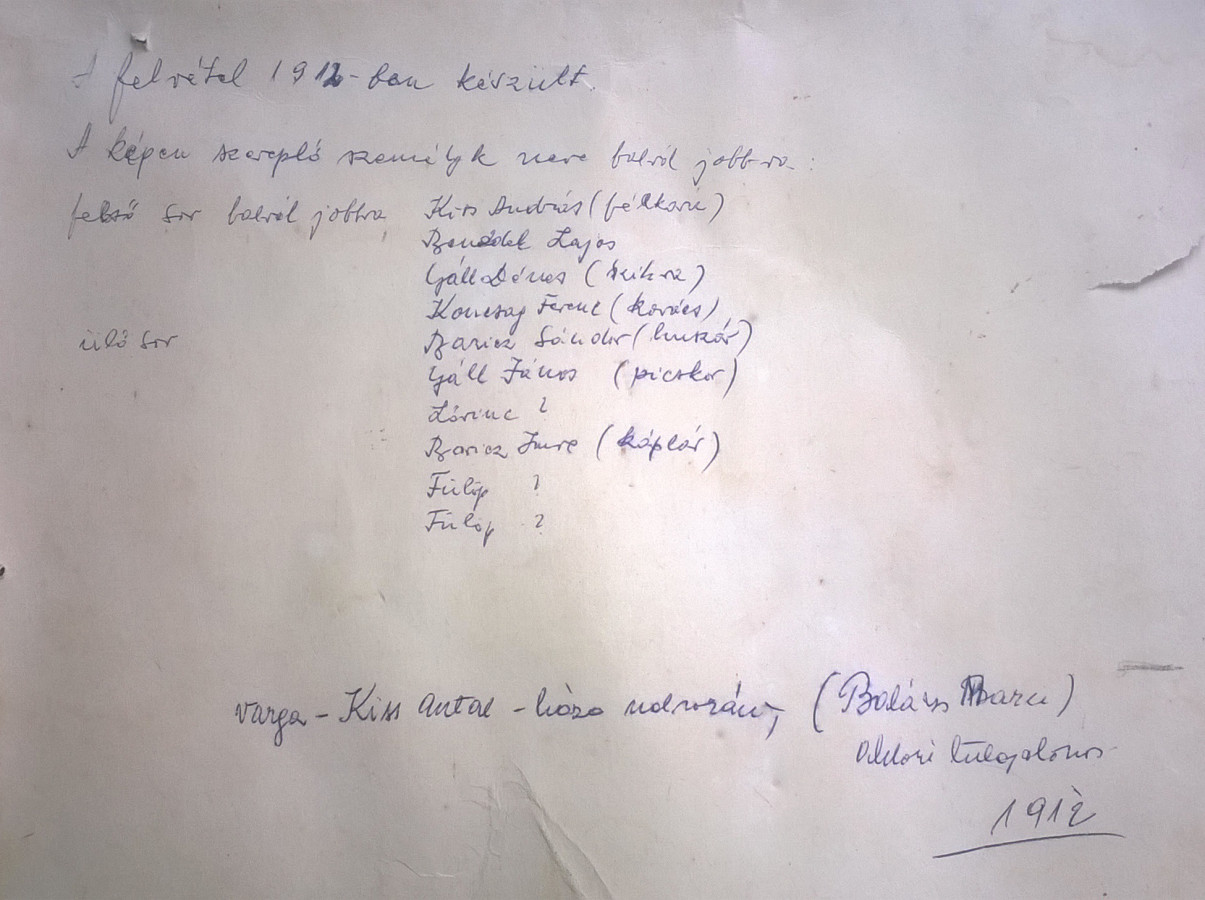 A felvétel 1912-ben készült.
A képen szereplő személyk neve balról jobbra:
felső sor balról jobbra Kiss András (félkarú)
Benedek Lajos
Gáll Dénes (szikra)
Koncsag Ferenc (kovács)
ülő sor Baricz Sándor (huszár)
Gáll János (picskor)
Lőrinc ?
Baricz Imre (káplár)
Fülöp ?
Fülöp ?
Varga - Kiss Antal - háza udvarán, (Balázs)
tulajdonos
1912